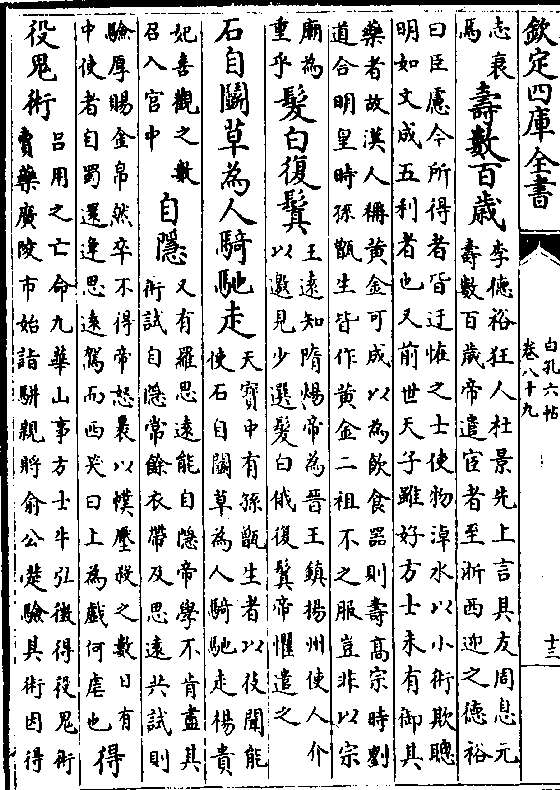 欽定四庫全書
白孔六帖
卷八十九
十三
志衰
焉
壽數百歲
李德裕狂人杜景先上言其友周息元
壽數百歲帝遣宦者至浙西迎之德裕
曰臣慮今所得者皆迂怪之士使物淖水以小術欺聰
明如文成五利者也又前世天子雖好方士未有御其
藥者故漢人稱黃金可成以為飲食器則壽高宗時劉
道合明皇時孫甑生皆作黃金二祖不之服豈非以宗
廟為
重乎
髮白復鬒
王遠知隋煬帝為晉王鎮揚州使人介
以邀見少選髮白俄復鬒帝懼遣之
石自鬬草為人騎馳走
天寶中有孫甑生者以伎聞能
使石自鬬草為人騎馳走楊貴
妃喜觀之數
召入宮中
自隱
又有羅思遠能自隱帝學不肯盡其
術試自隱常餘衣帶及思遠共試則
驗厚賜金帛然卒不得帝怒裹以幞壓殺之數日有
中使者自蜀還逢思遠駕而西笑曰上為戲何虐也
得
役鬼術
呂用之亡命九華山事方士牛弘徽得役鬼術
賣藥廣陵市始詣駢親將俞公楚驗其術因得